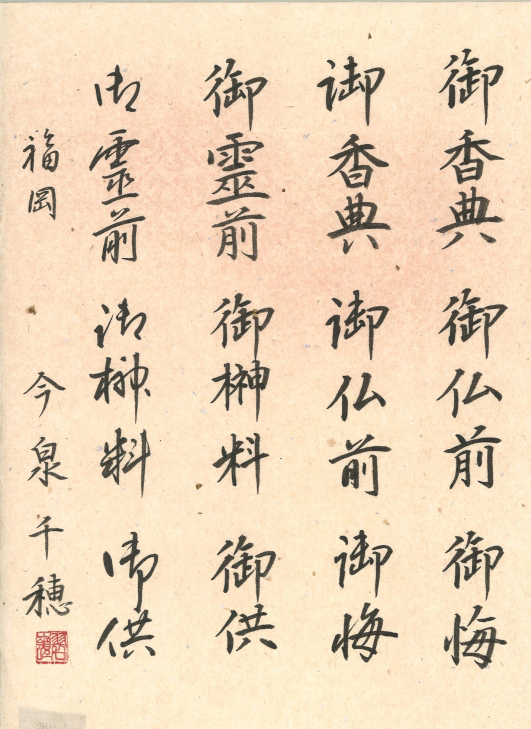 御香典 御仏前 御悔
御香典 御仏前 御悔
御靈前 御榊料 御供
御靈前 御榊料 御供
福岡 今泉千穂